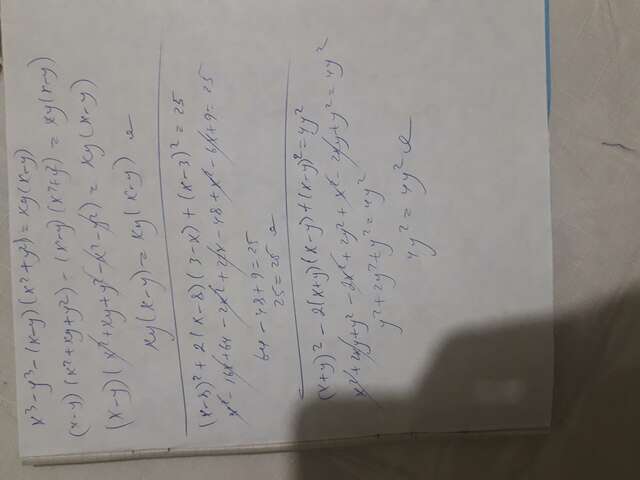 x³-y³-(x-y)(x²+y²)=xy(x-y)
(x-y)(x²+xy+y²)-(x-y)(x²+y²)=xy(x-y)
(x-y)(x²+xy+y²-x²-y²)=xy(x-y)
xy(x-y)=xy(x-y)
(x-8)²+2(x-8)(3-x)+(x-3)²=25
x²-16x+64-2x²+22x-48+x²-6x+9=25
64-48+9=25
25=25
(x+y)²-2(x+y)(x-y)+(x-y)²=4y²
x²+2xy+y²-2x²+2y²+x²-2xy+y²=4y²
y²+2y²+y²=4y²
4y²=4y²